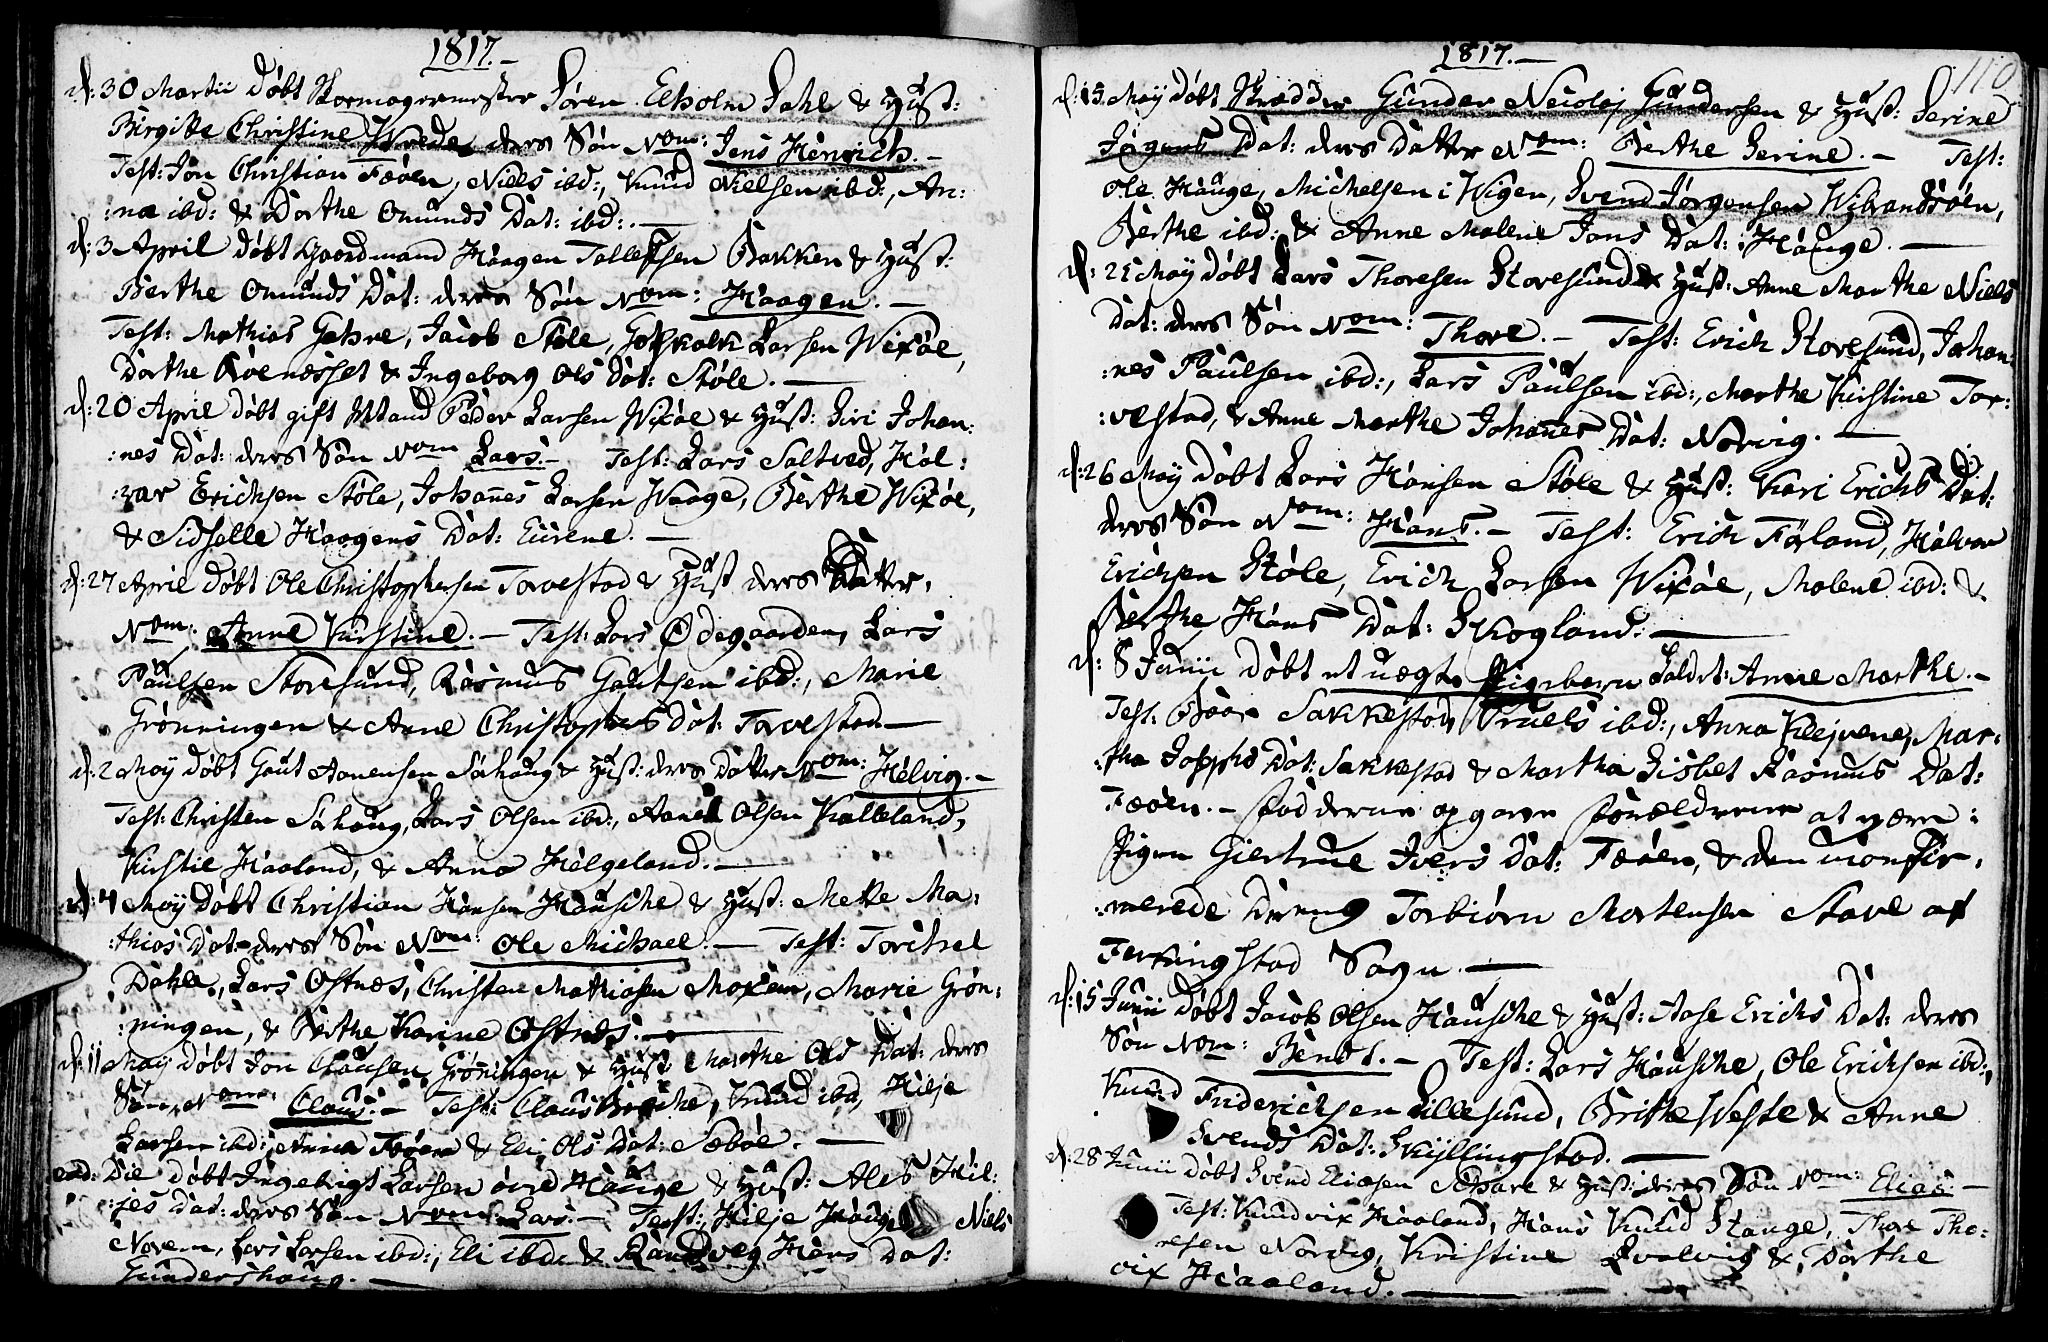 1817.-
d: 30 Martii døbt Skomagermester Søren Elholm Dahl & Hust:
Birgitte Christine Wrede, deres Søn Nom: Jens Henrich.-
Test: Jon Christian Føøen, Niels ibd:, Knud Nielsen ibd:, An:
:na ibd: & Dorthe Omunds Dat: ibd:.—
d: 3 April døbt Gaardmand Haagen Tollefsen Bakken & Hust:
Berthe Omunds Dat: deres Søn Nom: Haagen.-
Test: Mathias Giehre, Jacob Støle, Gotskalk Larsen Wixøe,
Dorthe Røenæsset & Ingeborg Ols Dat: Støle.—
d: 20 April døbt gift Mand Peder Larsen Wixøe & Hust: Siri Johan:
:nes Dat: deres Søn Nom Lars.- Test: Lars Saltved, Hal:
:var Erichsen Støle, Johanes Larsen Waage, Berthe Wixøe,
& Sidselle Haagens Dat: Eiirene.—
d: 27 April døbt Ole Christophersen Torvestad & Hust deres Datter,
Nom: Anne Kirstine.- Test: Lars Ødegaarden, Lars
Paulsen Storesund, Rasmus Gautsen ibd:, Marie
Grønningen & Anne Christophers Dat: Torvestad.—
d: 2 May døbt Gaut Aanensen Sørhaug & Hust: deres Datter Nom: Helvig.-
Test: Christen Sørhaug, Lars Olsen ibd:, Aanen Olsen Kalleland,
Kirstie Haaland, & Anna Helgeland.—
d: 4 May døbt Christian Hansen Hausche & Hust: Mette Ma:
:thias Dat: deres Søn Nom: Ole Michael.— Test: Torchel
Dahle, Lars Østnæs, Christen Mathiasen Moxem, Marie Grøn:
:ningen, & Berthe Karine Østnæs.—
d: 11 May døbt Jon Clausen Grøningen & Hust: Marthe Ols Dat: deres
Søn Nom: Claus.- Test: Claus, Knud ibd, Hilje
Larsen ibd:, Anna Føøen & Eli Ols Dat: Sæbøe.—
eod: Die døbt Ingebrigt Larsen øvre Hauge & Hust: Alet Hil:
:jes Dat: deres Søn Nom: Lars.- Test: Hilje Hauge, Niels
Norem, Lars Larsen ibd:, Eli ibd: & Randveg Hers Dat:
Gundershaug.—
1817.—
110
d: 15 May døbt Skrædder Gunder Nicolaj Gundersen & Hust: Serine
Jørgens Dat: deres Datter Nom: Berthe Serine.- Test:
Ole Hauge, Michelsen i Wigen, Svend Jørgensen Wibrandsøen,
Berthe ibd: & Anne Malene Jans Dat: Hauge.—
d: 25 May døbt Lars Thoresen Storesund & Hust: Anne Marthe Niels
Dat: deres Søn Nom: Thore.- Test: Erich Storesund, Johan:
:nes Paulsen ibd:, Lars Paulsen ibd:, Marthe Kirstine Tor:
:vestad, & Anne Marthe Johanes Dat: Norvig.—
d: 26 May døbt Lars Hansen Støle & Hust: Kari Erichs Dat:
deres Søn Nom: Hans.- Test: Erich Førland, Halvor
Erichsen Støle, Erich Larsen Wixøe, Malene ibd: &
Berthe Hans Dat: Skogland.—
d: 8 Junii døbt et uægte Pigebarn kaldet: Anne Marthe.-
Test: Baar Sakkestad, Truels ibd:, Anna Klejvene, Mar:
:tha Josephs Dat: Sakkestad & Martha Lisbet Rasmus Dat:
Føøen.- Fadderne opgaver Forældrene at være:
Pigen Giertrue Ivers Dat: Føøen, & den uconfir:
:merede Dreng Torbiørn Mortensen Stave af
Ferkingstad Sogn.—
d: 15 Junii døbt Jacob Olsen Hausche & Hust: Aase Erichs Dat: deres
Søn Nom: Bendt.- Test: Lars Hausche, Ole Erichsen ibd:,
Knud Friderichsen Lillesund, Brithe Weste & Anne
Svends Dat: Skyllingstad.—
d: 28 Junii døbt Svend Eliasen Spare & Hust: deres Søn Nom: Elias.—
Test: Knud vix Haaland, Hans Knud Stange, Thore Tho:
:resen Norvig, Kristine Qvalvig & Dorthe
vix Haaland.—